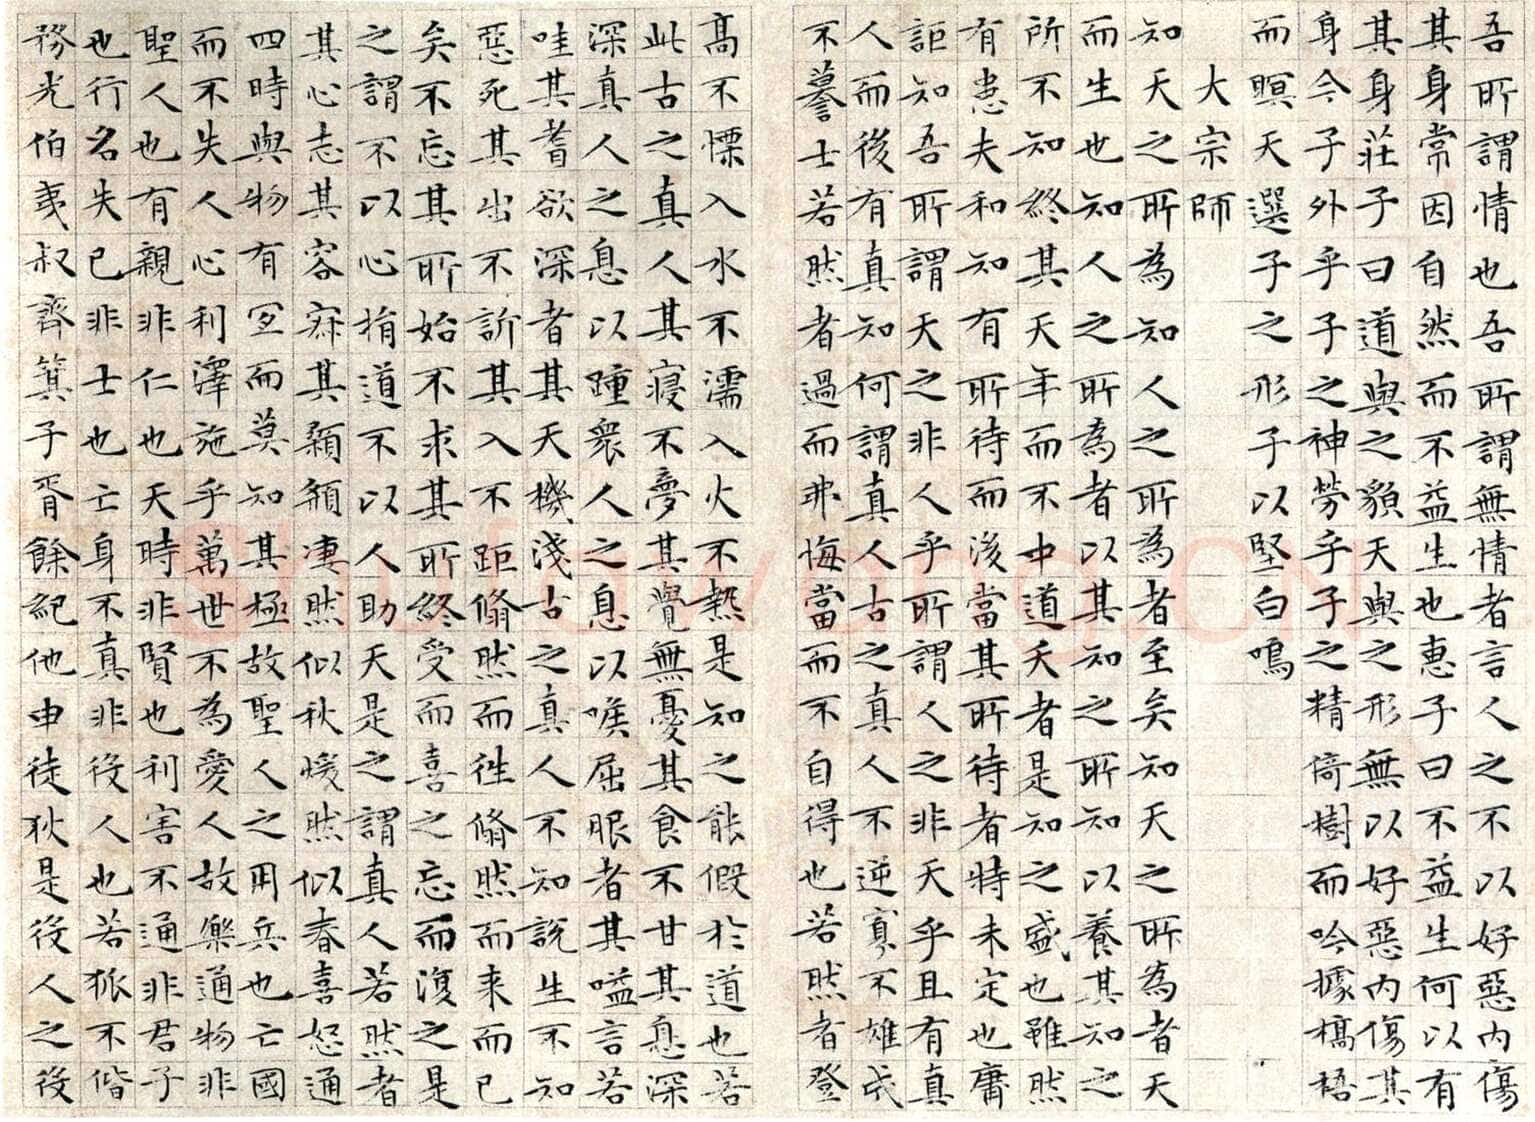 吾所謂情也吾所謂無情者言人之不以好惡内傷
其身常因自然而不益生也惠子曰不益生何以有
其身莊子曰道與之貌天與之形無以好惡内傷其
身今子外乎子之神勞乎子之精倚樹而吟據槁梧
而瞑天選子之形子以堅白鳴
大宗師
知天之所為知人之所為者至矣知天之所為者天
而生也知人之所為者以其知之所知以養其知之
所不知終其天年而不中道夭者是知之盛也雖然
有患夫和知有所待而後當其所待者特未定也庸
詎知吾所謂天之非人乎所謂人之非天乎且有真
人而後有真知何謂真人古之真人不逆寡不雄成
不謩士若然者過而弗悔當而不自得也若然者登
高不慄入水不濡入火不熱是知之能假於道也若
此古之真人其寢不夢其覺無憂其食不甘其息深
深真人之息以踵衆人之息以喉屈服者其嗌言若
哇其耆欲深者其天機淺古之真人不知說生不知
惡死其出不訢其入不距翛然而往翛然而来而已
矣不忘其所始不求其所終受而喜之忘而復之是
之謂不以心捐道不以人助天是之謂真人若然者
其心志其容寂其顙頯凄然似秋煖然似春喜怒通
四時與物有宜而莫知其極故聖人之用兵也亡國
而不失人心利澤施乎萬世不為愛人故樂通物非
聖人也有親非仁也天時非賢也利害不通非君子
也行名失己非士也亡身不真非役人也若狐不偕
務光伯夷叔齊箕子胥餘紀他申徒狄是役人之役
shufawang.CN